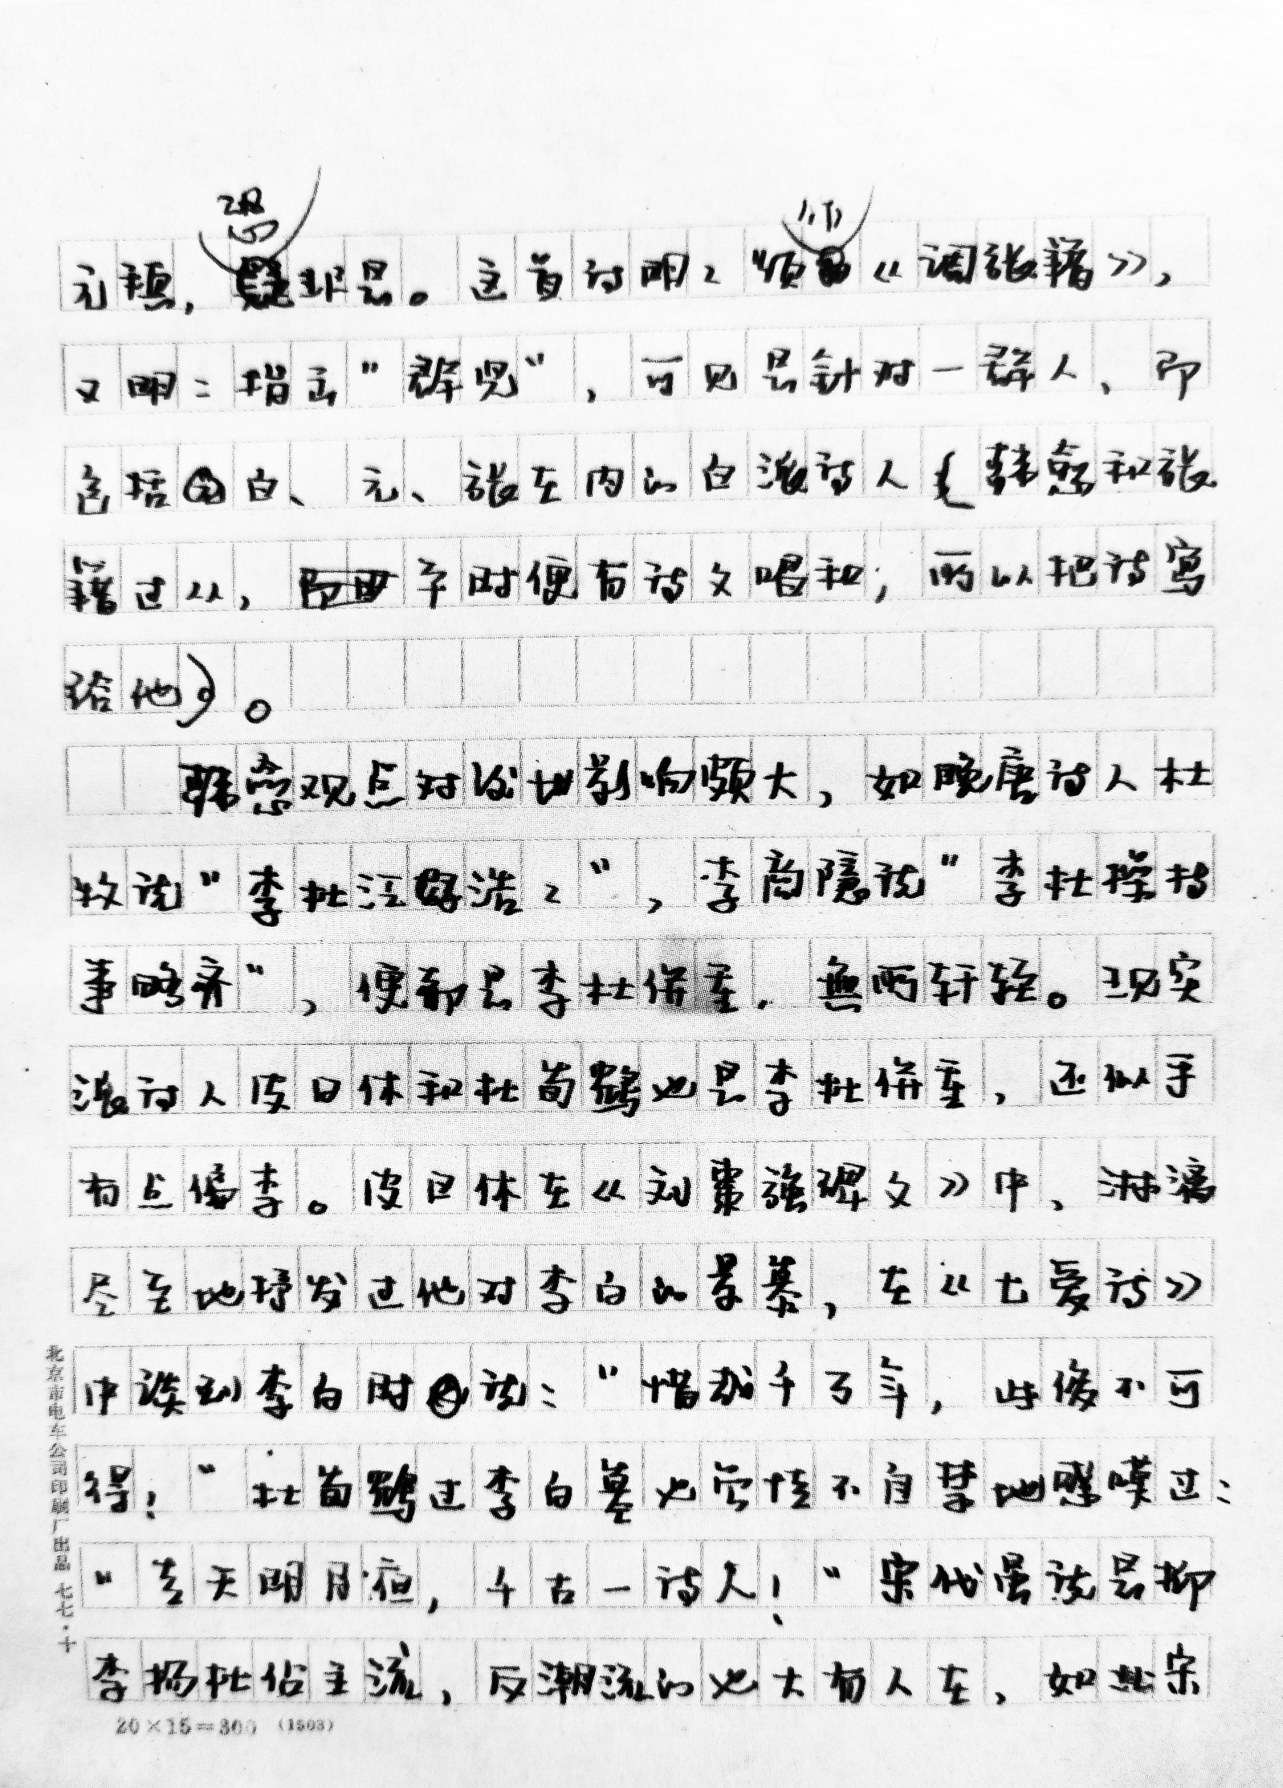 元稹，恐非是。这首诗明々“颂师《调张籍》，
又明々指出“群儿”，可见是针对一群人、即
包括白、元、张在内的白派诗人（韩愈和张
籍过从，平时便有诗文唱和，所以把诗写
给他）。
韩愈观点对后世影响颇大，如晚唐诗人杜
牧说“李杜泛浩々”，李商隐说“李杜操持
事略齐”，便都是李杜併重，无所轩轾。现实
派诗人皮日休和杜荀鹤也是李杜併重，还似乎
有点偏李。皮日休在《刘枣强碑文》中，淋漓
尽至地抒发过他对李白的景慕，在《七爱诗》
中谈到李白时说：“惜哉千万年，此俊不可
得！”杜荀鹤过李白墓也空情不自禁地感嘆过：
“青天明月夜，千古一诗人！”宋代虽说是抑
李扬杜佔主流，反潮流的也大有人在，如北宋
北京市电车公司印刷厂出品 七七·十
20×15＝300 (1503)